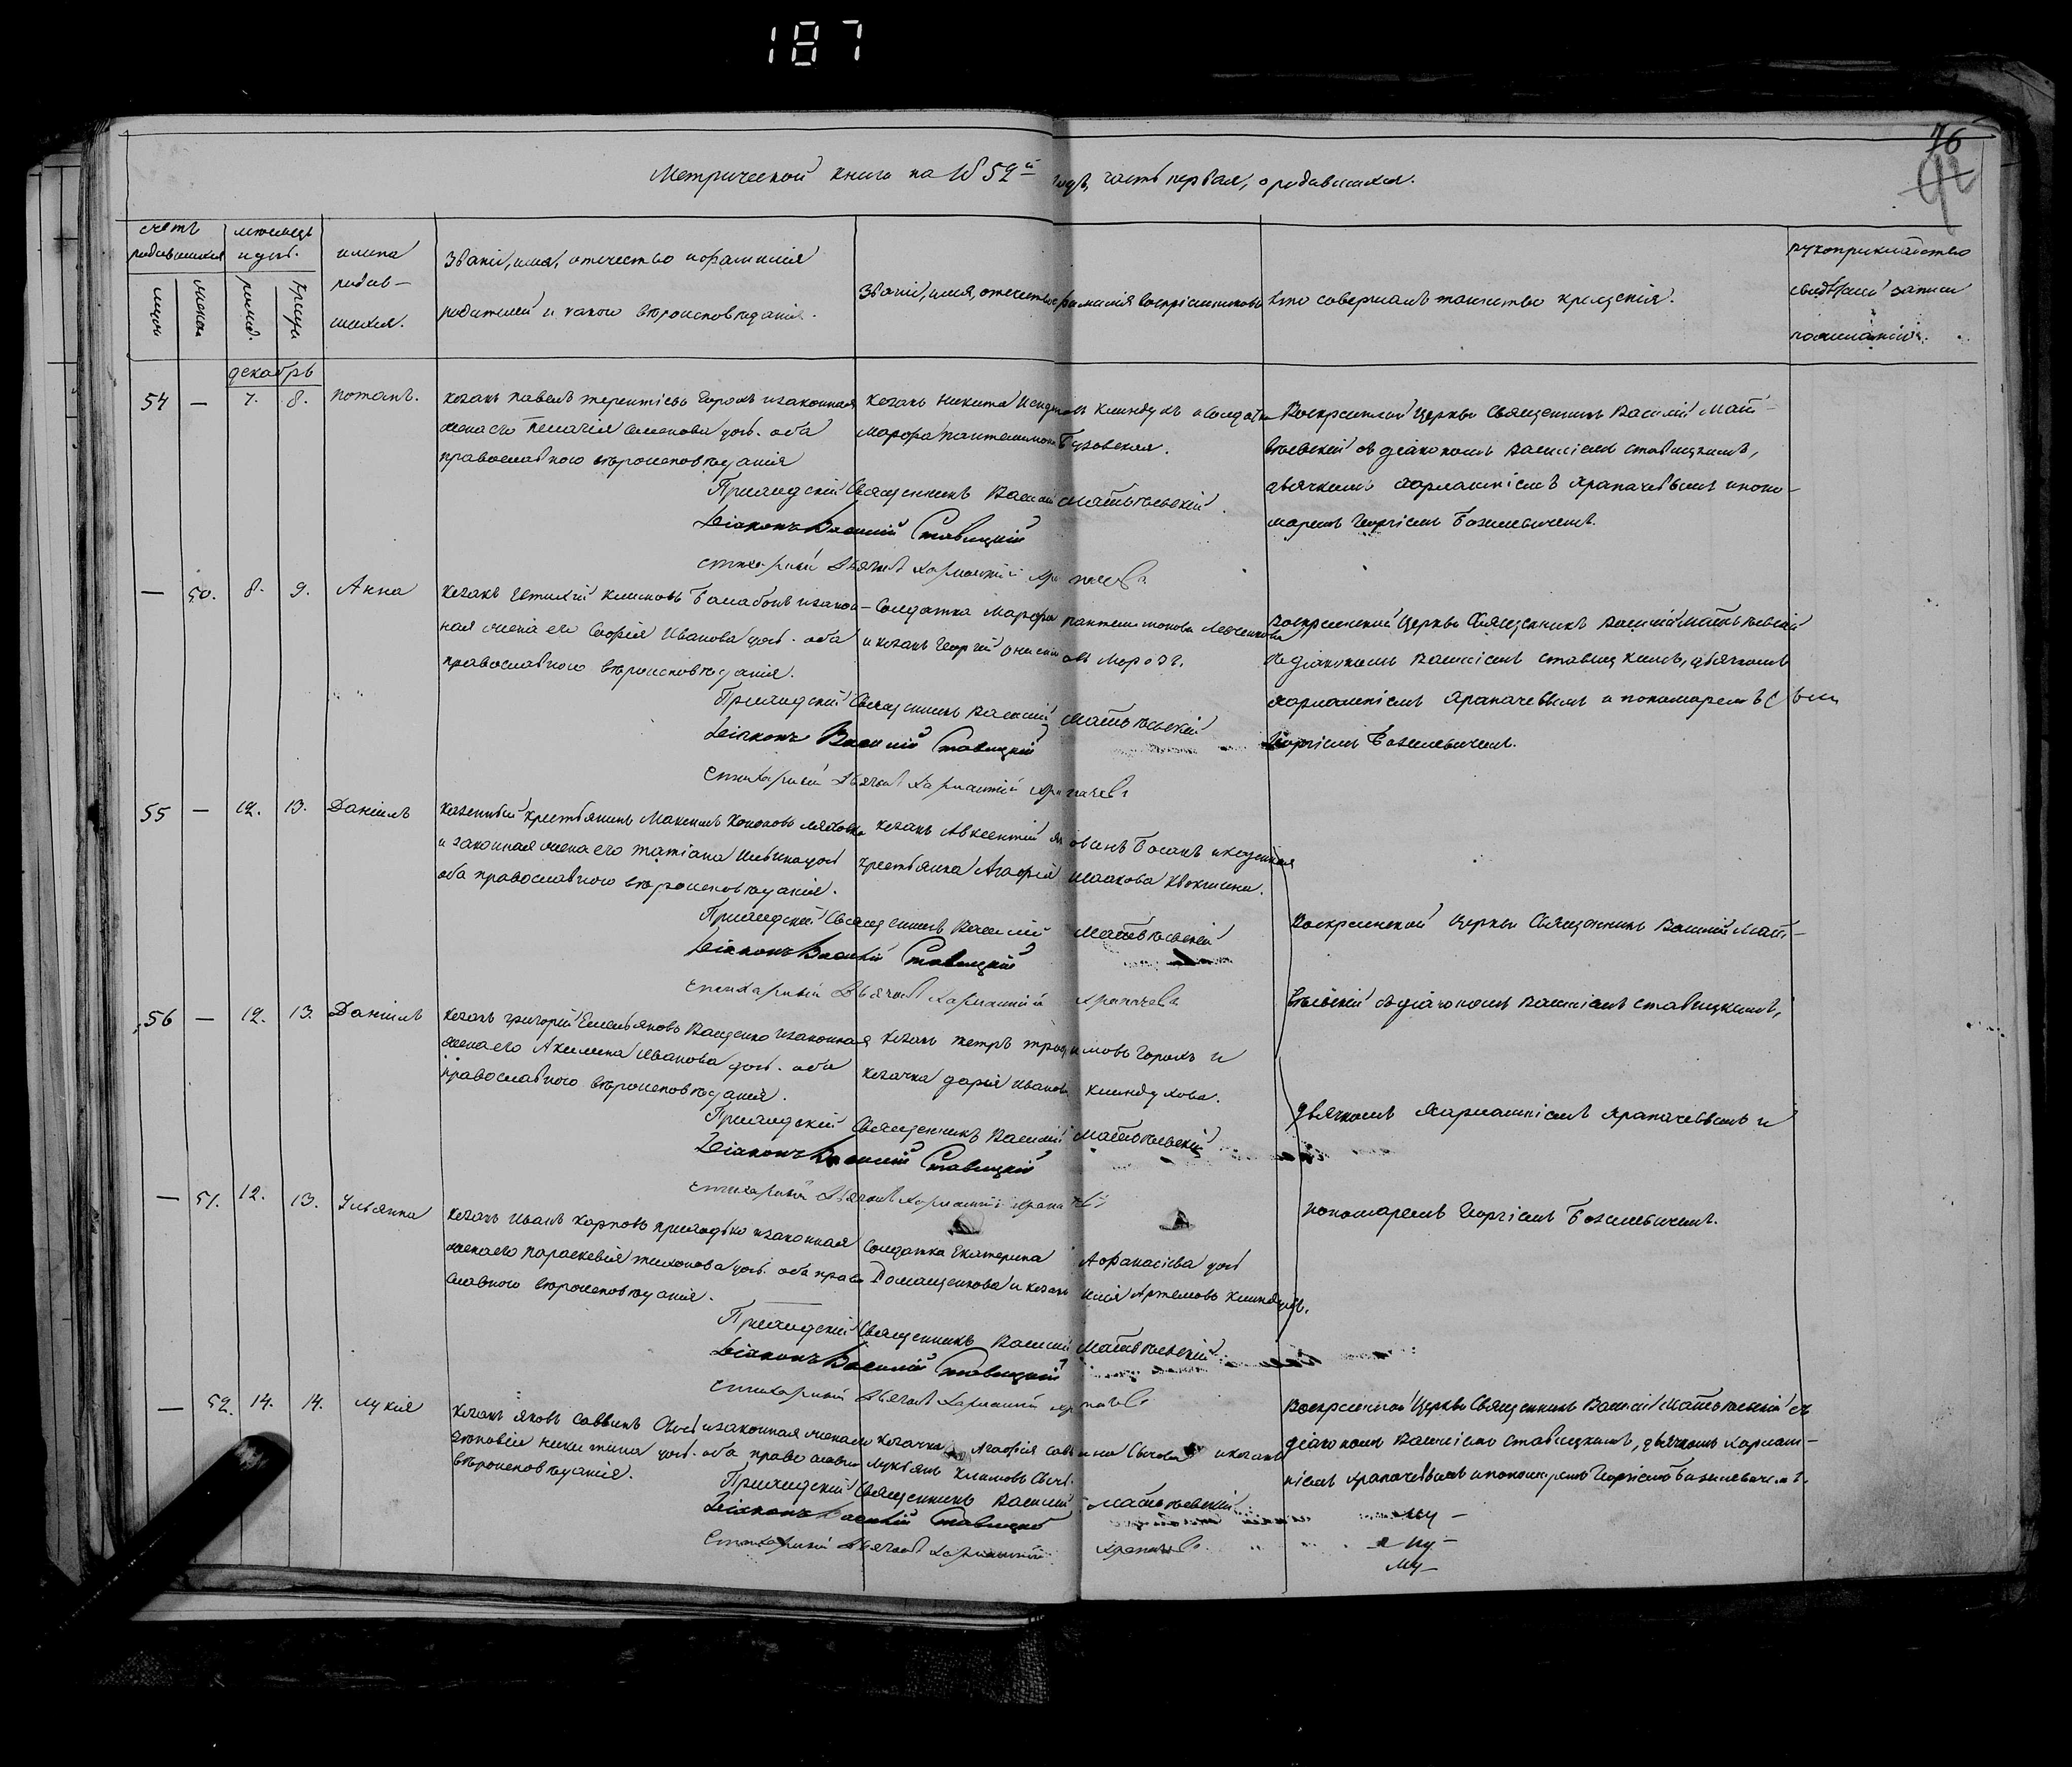 187
76
92
Метрической книги на 1852й годъ, часть первая, о родившихся.
счетъ родившихся
мужск
женск
мѣсяцъ и день.
рожд.
крещен
имена родив-
шихся.
Званіе, имя, отечество и фамилія
родителей и какого вѣроисповѣданія.
Званіе, имя, отечество и фамилія воспріемниковъ
кто совершалъ таинство крещенія.
рукоприкладство
свидѣтелей записи
по желанію.
декабрь
54 — 7. 8. Потапъ.
козакъ Павелъ Терентіевъ Горохъ и законная
жена его Пелагія Семенова дочь. оба
православного вѣроисповѣданія
козакъ Никита Клиндухъ и солдатка
Марфа Пантелимонова Бузовская.
Воскресенской Церкви Священникъ Василій Мат-
вѣевскій съ діакономъ Василіемъ Ставицкимъ,
дьячкомъ Харлампіемъ Храпачевымъ и поно-
маремъ Георгіемъ Базилевичемъ.
Приходскій Священникъ Василій Матвѣевскій.
Діаконъ Василій Ставицкій
стихарный Дьячекъ Харлампій Храпачевъ
— 50. 8. 9. Анна
козакъ Евтихій Климовъ Балабонъ и закон-
ная жена его Софія Иванова дочь. оба
православного вѣроисповѣданія.
Солдатка Марфа Пантелимонова Левченкова
и козакъ Георгій Онисимовъ Морозъ.
Воскресенской Церкви Священникъ Василій Матвѣевскій
съ діакономъ Василіемъ Ставицкимъ, дьячкомъ
Харлампіемъ Храпачевымъ и пономаремъ
Георгіемъ Базилевичемъ.
Приходскій Священникъ Василій Матвѣевскій
Діаконъ Василій Ставицкій
Стихарный Дьячекъ Харлампій Храпачевъ
55 — 12. 13. Даніилъ
казенный крестьянинъ Максимъ Кононовъ
и законная жена его Татіана дочь
оба православного вѣроисповѣданія.
козакъ Авксентій Босакъ и казенная
крестьянка Агафія Исаакова
Приходскій Священникъ Василій Матвѣевскій
Діаконъ Василій Ставицкій
Стихарный Дьячекъ Харлампій Храпачевъ
Воскресенской Церкви Священникъ Василій Мат-
вѣевскій съ діакономъ Василіемъ Ставицкимъ,
дьячкомъ Харлампіемъ Храпачевымъ и
пономаремъ Георгіемъ Базилевичемъ.
56 — 12. 13. Даніилъ
козакъ Григорій Емельяновъ Ващенко и законная
жена его Акилина Иванова дочь. оба
православного вѣроисповѣданія.
козакъ Петръ Трофимовъ Горохъ и
козачка Дарія Иванова Клиндухова.
Приходскій Священникъ Василій Матвѣевскій
Діаконъ Василій Ставицкій
Стихарный Дьячекъ Харлампій Храпачевъ
— 51. 12. 13. Ульянна
козакъ Иванъ Карповъ Приходько и законная
жена его Параскевія Тихонова дочь. оба право-
славного вѣроисповѣданія.
солдатка Екатерина Афанасіева дочь
Домащенкова и козакъ Илія Артемовъ Клиндухъ.
Приходскій Священникъ Василій Матвѣевскій
Діаконъ Василій Ставицкій
Стихарный Дьячекъ Харлампій Храпачевъ
— 52. 14. 14. Лукія
козакъ Яковъ Саввинъ Сычъ и законная жена его
Зѣновія Никитина дочь. оба православного
вѣроисповѣданія.
козачка Агафія Саввина Сычова и козакъ
Лукьянъ Климовъ Сычъ.
Воскресенской Церкви Священникъ Василій Матвѣевскій съ
діакономъ Василіемъ Ставицкимъ, дьячкомъ Харлам-
піемъ Храпачевымъ и пономаремъ Георгіемъ Базилевичемъ.
Приходскій Священникъ Василій Матвѣевскій
Діаконъ Василій Ставицкій
Стихарный Дьячекъ Харлампій Храпачевъ